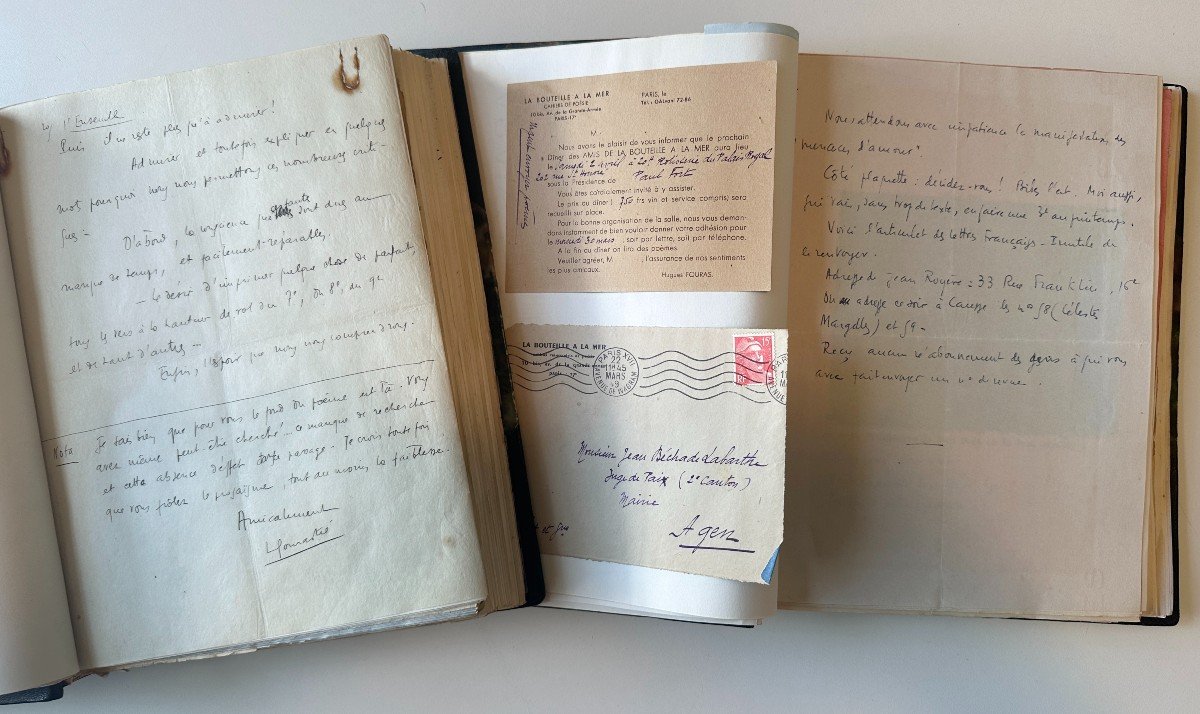 l'Ensemble
Puis il ne reste plus qu'à admirer !
Admirer, et toutefois expliquer en quelques
mots pourquoi nous nous permettons ces monstrueuses
D'abord, la
manque de temps, et facilement réparables.
— le désir d'imprimer quelque chose de parfait,
tous les vers à la hauteur de ceux du 7e, du 8e, du 9e
et de tant d'autres —
Enfin, l'espoir que vous nous comprendrez.
Nota Je sais bien que pour vous le fond du poème est là. Vous
avez même peut-être cherché ce manque de recherche
et cette absence d'effet passage. Je crois toutefois
que vous frôlez le prosaïsme, tout au moins la faiblesse.
Amicalement
LA BOUTEILLE A LA MER
CAHIERS DE POÉSIE
10bis, AV. de la Grande-Armée
PARIS-17e
PARIS, le
Tél. : GALvani 72-86
M.
Nous avons le plaisir de vous informer que le prochain
« Dîner des AMIS DE LA BOUTEILLE A LA MER aura lieu
le Samedi 2 avril à 20h Rotisserie du Palais Royal
202 rue St Honoré
sous la Présidence de Paul Fort
Vous êtes cordialement invité à y assister.
Le prix du dîner ( 750 frs vin et service compris) sera
recueilli sur place.
Pour la bonne organisation de la salle, nous vous deman-
dons instamment de bien vouloir donner votre adhésion pour
le mercredi 30 mars, soit par lettre, soit par téléphone.
A la fin du dîner on lira des poèmes.
Veuillez agréer, M , l'assurance de nos sentiments
les plus amicaux.
Hugues FOURAS.
LA BOUTEILLE A LA MER
PARIS XVII
18H45
22
MARS
AVENUE DE WAGRAM
15F
Monsieur Jean Béchade Labarthe
Juge de Paix (2e Canton)
Mairie
Agen
Nous attendons avec impatience la manifestation des
"menaces d'amour".
Côté plaquette : décidez-vous ! Moi aussi,
qui vais, sans trop de texte, en faire une 3e au printemps.
Voici l'articulet des Lettres Françaises. Inutile de
le renvoyer.
Adresse de Jean Royère : 33 Rue Franklin, 16e
les nos 58 (Célestes
Margelles) et 59 -
Reçu aucun réabonnement des gens à qui vous
avez fait envoyer un no de revue.